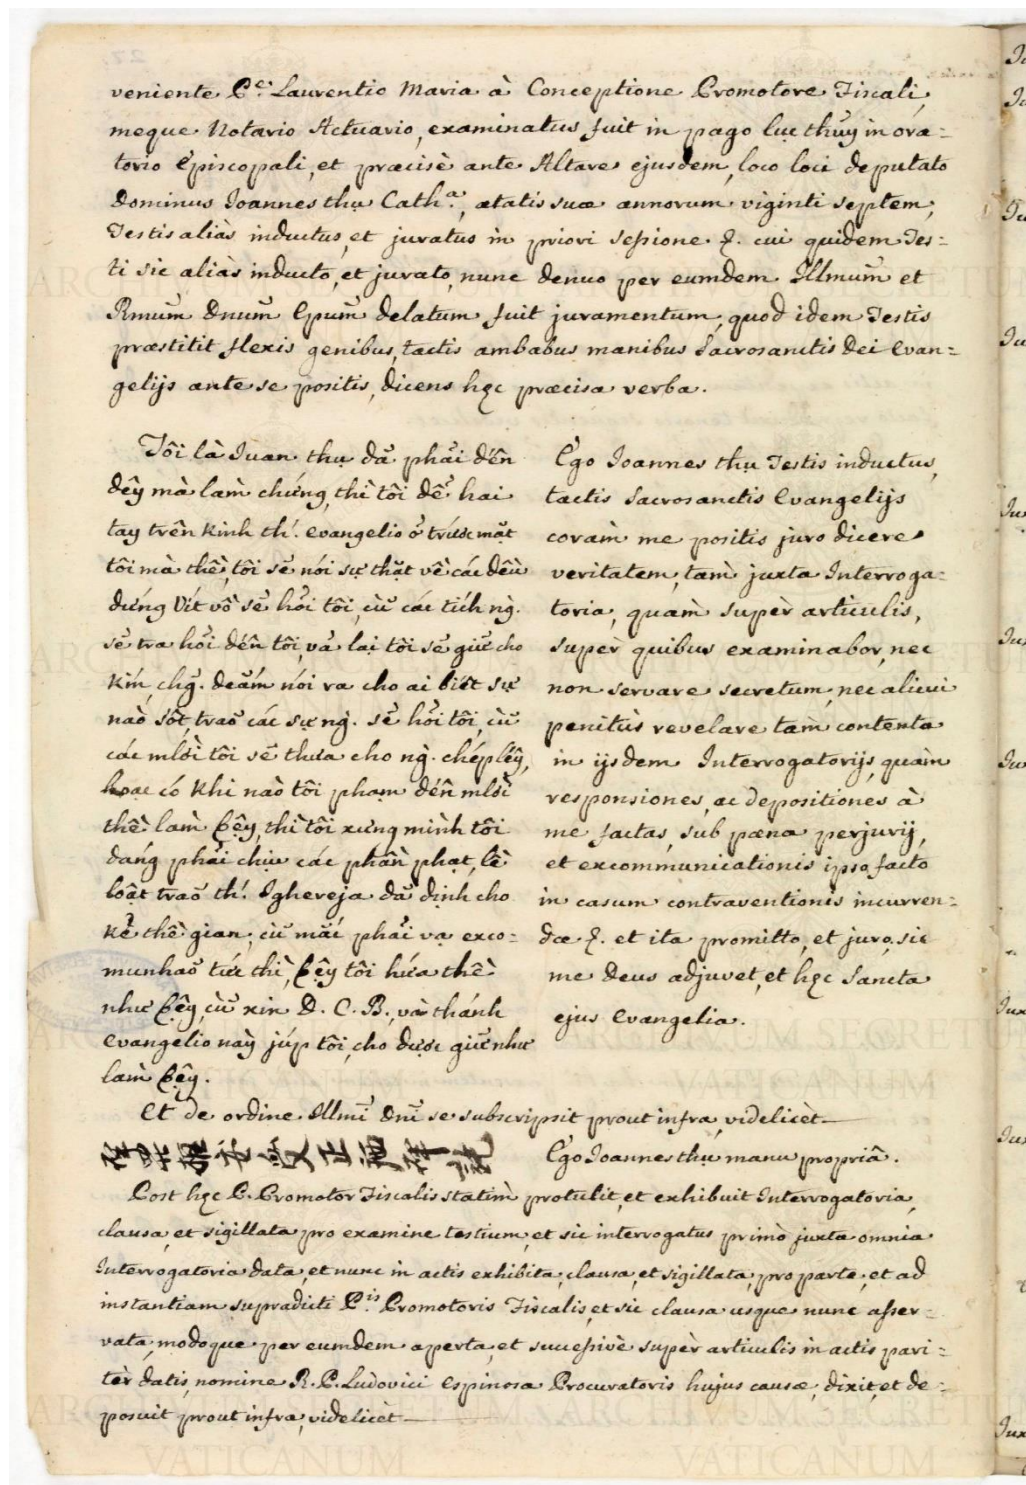 veniente P.e Laurentio Maria à Conceptione Promotore Fiscali,
meque Notario Actuario, examinatus fuit in pago lục thủy in ora=
torio Episcopali, et præcisè ante Altare ejusdem, loco loci deputato
Dominus Joannes thu Cath.a, ætatis suæ annorum viginti septem,
Testis aliàs inductus, et juratus in priori sessione &. cui quidem Tes=
ti sic aliàs inducto, et jurato, nunc denuo per eumdem Illmum̃ et
Rmum̃ Dnum̃ Epum̃ delatum fuit juramentum, quod idem Testis
præstitit flexis genibus, tactis ambabus manibus Sacrosanctis Dei Evan=
gelijs ante se positis, dicens hęc præcisa verba.
Tôi là Juan thu đã phải đến
đêy mà làm chứng, thì tôi để hai
tay trên kinh th́. evangelio ở trước mặt
tôi mà thề, tôi sẽ nói sự thật về các đều
đứng Vít vồ sẽ hỏi tôi, cù các tích ng̀.
sẽ tra hỏi đến tôi, và lại tôi sẽ giữ cho
kín, chg̉. deám nói ra cho ai biết sự
nào sốt, traõ các sự ng̀. sẽ hỏi tôi, cù
các mlời tôi sẽ thưa cho ng̀. chép lếy,
hoạc có khi nào tôi phạm đến mlời
thề làm ꞗệy, thì tôi xưng mình tôi
đáng phải chịu các phần phạt, lề
loật traõ th́. Ighereja đã định cho
kẻ thề gian, cù mắc phải vạ exco=
munhaõ tức thì, ꞗệy tôi hứa thề
như ꞗệy, cù xin D. C. B., và thánh
evangelio này júp tôi, cho được giữ như
làm ꞗệy.
Ego Joannes thu Testis inductus,
tactis Sacrosanctis Evangelijs
coràm me positis juro dicere
veritatem, tàm juxta Interroga=
toria, quàm supèr articulis,
supèr quibus examinabor, nec
non servare secretum, nec alicui
penitùs revelare tàm contenta
in ijsdem Interrogatorijs, quàm
responsiones, ac depositiones à
me factas, sub pæna perjurij,
et excommunicationis ipso facto
in casum contraventionis incurren=
dæ &. et ita promitto, et juro, sic
me Deus adjuvet, et hęc Sancta
ejus Evangelia.
Et de ordine Illmĩ Dnĩ se subscripsit prout infra, videlicèt
Ego Joannes thu manu propriâ.
Post hęc P. Promotor Fiscalis statìm protulit, et exhibuit Interrogatoria,
clausa, et sigillata pro examine testium, et sic interrogatus primò juxta omnia
Interrogatoria data, et nunc in actis exhibita, clausa, et sigillata, pro parte, et ad
instantiam supradicti P.is Promotoris Fiscalis, et sic clausa usque nunc asser=
vata, modoque per eumdem aperta, et successivè supèr articulis in actis pari=
tèr datis, nomine R. P. Ludovici Espinosa Procuratoris hujus causæ, dixit, et de=
posuit prout infra, videlicèt